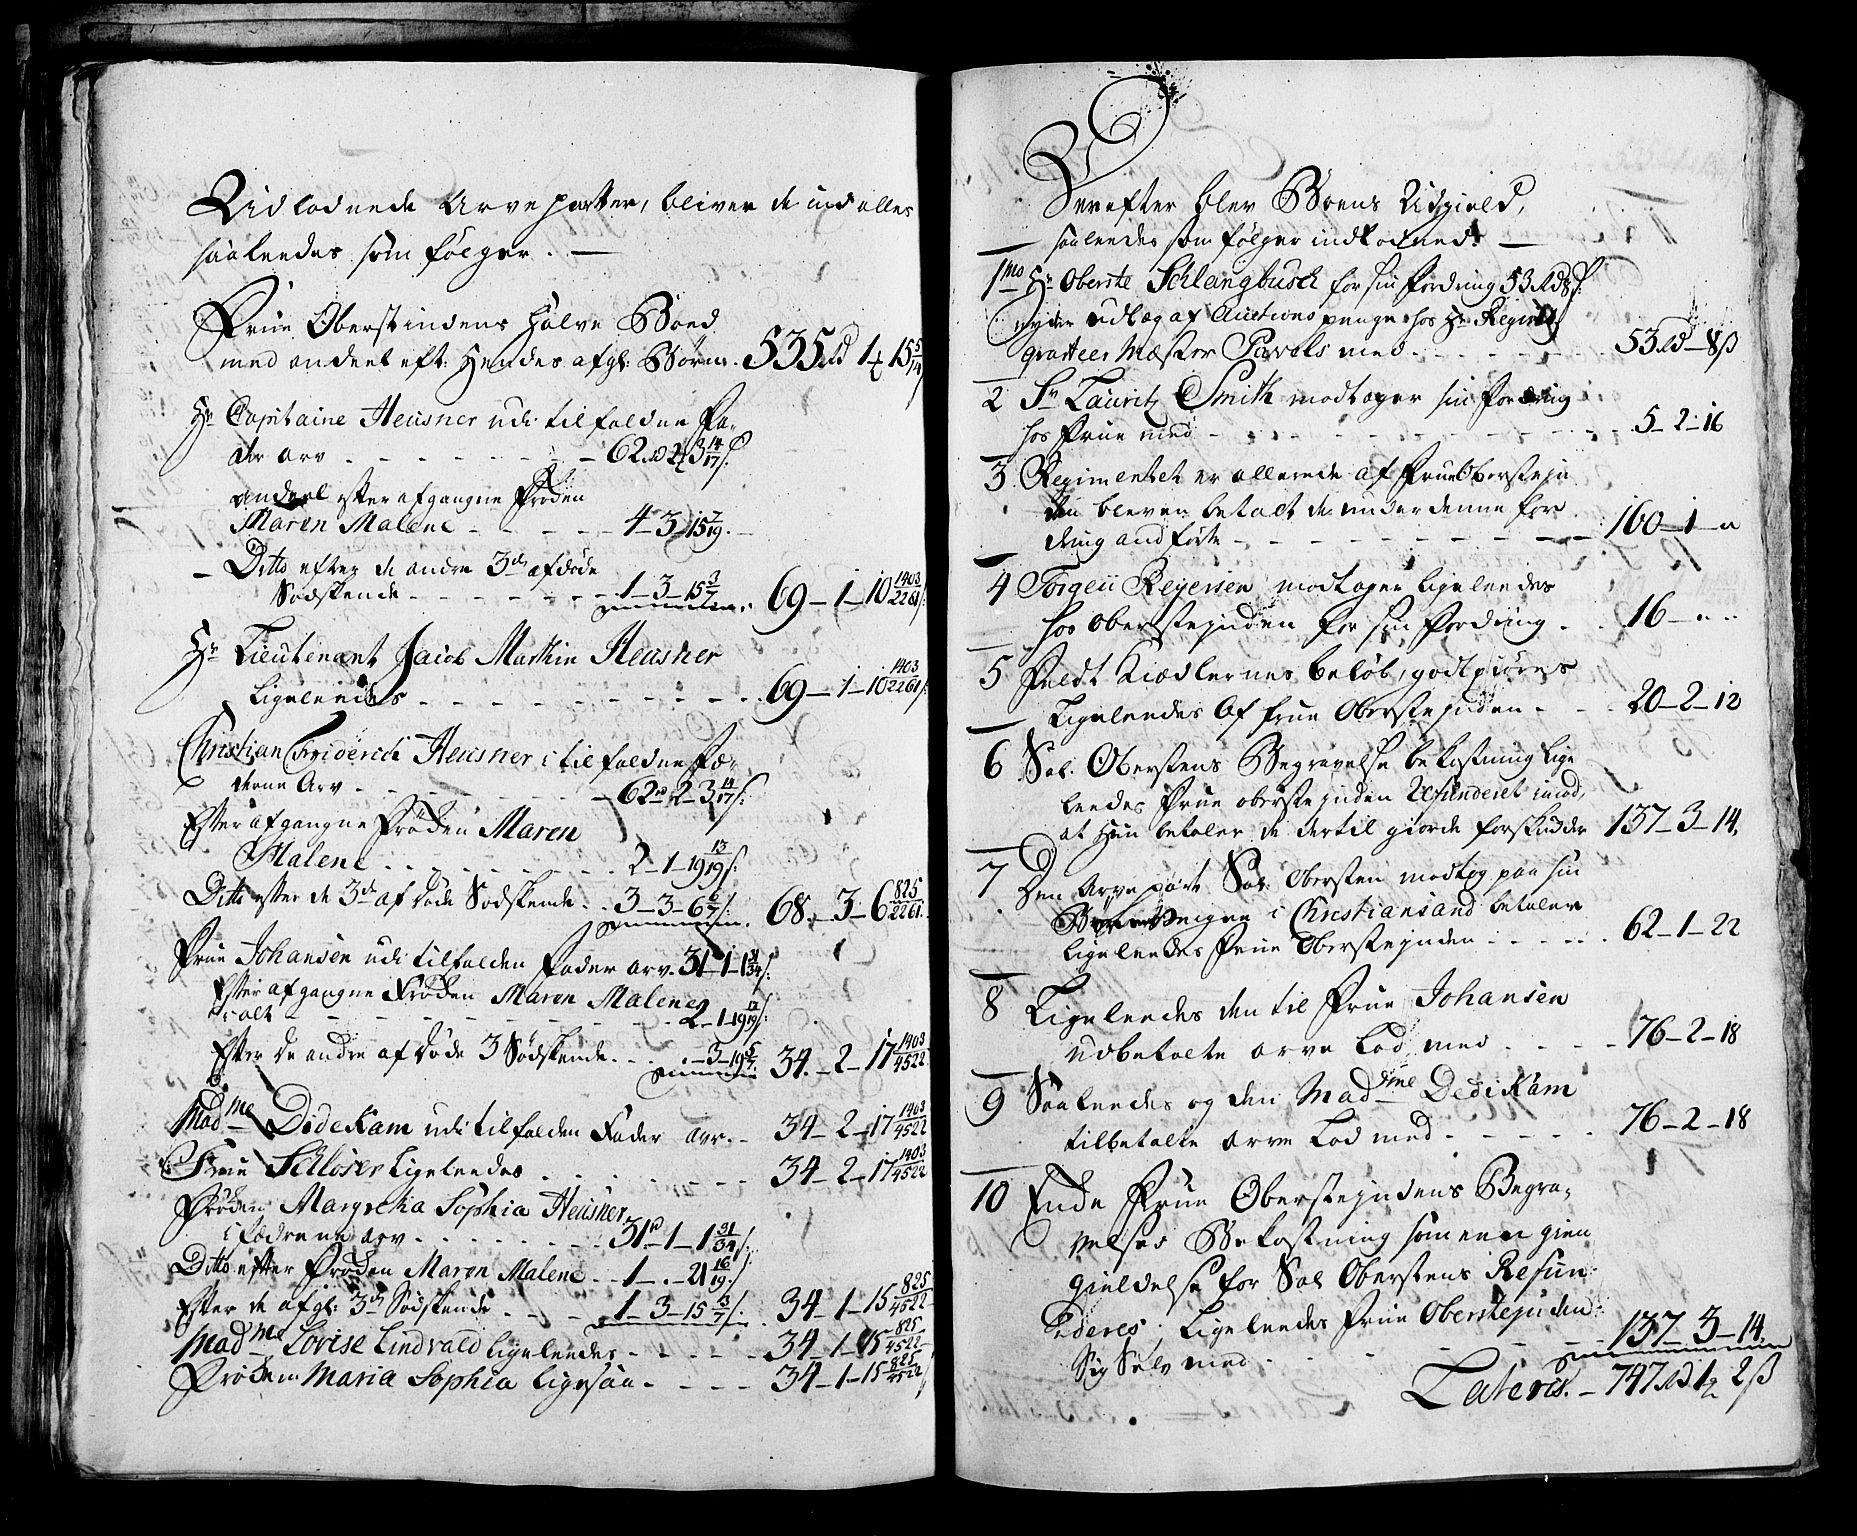 Udlodnede Arve parter, bliver de ind alles
saaleedes som følger. —
Frue Oberstindens Halve Boed
med andeel eft: Hendes afgl: Børn. 535 rd 1 15 5/14
Hr Capitaine Heusner udi tilfalden Fa-
der arv - - - - - 62 rd 2 3 14/17 s:
andeel efter afgangne Frøden
Maren Malene - - - - 4-3-15 7/19
- Ditto efter de andre 3de afdøde
Sødskende - - - - - 1-3-15 3/7 69-1-10 1403/2261 s:
Hr Lieutenant Jacob Marthin Heusner
Ligeleedes - - - - - 69-1-10 1403/2261 s:
Christian Friderich Heusner i tilfalden Fæ-
derne Arv - - - - - 62 rd 2-3 14/17 s:
Efter afgangne Frøden Maren
Malene - - - - - 2-1-19 13/19 s:
Ditto efter de 3de af døde Sødskende - 3-3-6 6/7 s: 68-3-6 825/2261
Frue Johansen udi tilfalden Fader arv. 31-1-1 31/34 s:
Efter afgangne Frøden Maren Malene
alt - - - - - 2-1-19 13/19 s:
Efter De andre af døde 3 Sødskende - - -3-19 5/7 34-2-17 1403/4522
Madme Didekam udi tilfalden Fader arv. - 34-2-17 1403/4522
Frue Schløser Ligeleedes - - - - 34-2-17 1403/4522
Frøden Margretha Sophia Heusner
i fædrene arv - - - - 31 rd-1-1 31/34 s:
Ditto efter Frøden Maren Malene - - 1-.-21 16/19 s:
Efter de afgl: 3de Sødskende - - - 1-3-15 3/7 s: 34-1-15 825/4522
Madme Lovise Lindvald Ligeleedes - - - - 34-1-15 825/4522
Frøden Maria Sophia Ligesaa - - - - 34-1-15 825/4522
Derefter blev Boens Udgield,
saaleedes som følger indkodned: —
1mo Hr Oberste Schlangbusch for sin Fordring 53 rd 8 s:
nyder udlæg af Auctions penge hos Hr Regiments
qvarteer Mæster Pavels med - - - - 53 rd - 8 s
2 Sr Lauritz Smith modtager sin Fordring
hos Frue med - - - - - 5-2-16
3 Regimentet er allerede af Frue Obersteju
den bleven betalt de under denne for
dring andførte - - - - - 160-1-"
4 Torgeii Reyersen modtager Ligeleedes
hos Oberstejnden for sin Fordring - - 16-"-"
5 Feldt Kiædlernes beløb, godtgiøres
Ligeleedes Af Frue Oberstejnden - - - 20-2-12
6 Sal. Oberstens Begravelse bekostning Lige
leedes Frue oberstejnden Refunderet imod,
at Hun betaler de dertil giorde forskudder 137-3-14,
7 Den Arve part Sal: Obersten modtog paa sin
i Christiansand betaler
Ligeleedes Frue Oberstejnden - - - - 62-1-22
8 Ligeleedes den til Frue Johansen
udbetalte arve Lod med - - - 76-2-18
9 Saaleedes og den Madme Dedekam
tilbetalte arve Lod med - - - - - 76-2-18
10 Ende Frue Oberstejndens Begra-
velses Bekostning som een gien
gieldelse for Sal Oberstens Refun-
deres, Ligeleedes Frue Oberstejnden
Sig Selv med - - - - - 137-3-14
Lateris. - 747 rd 1 2 s